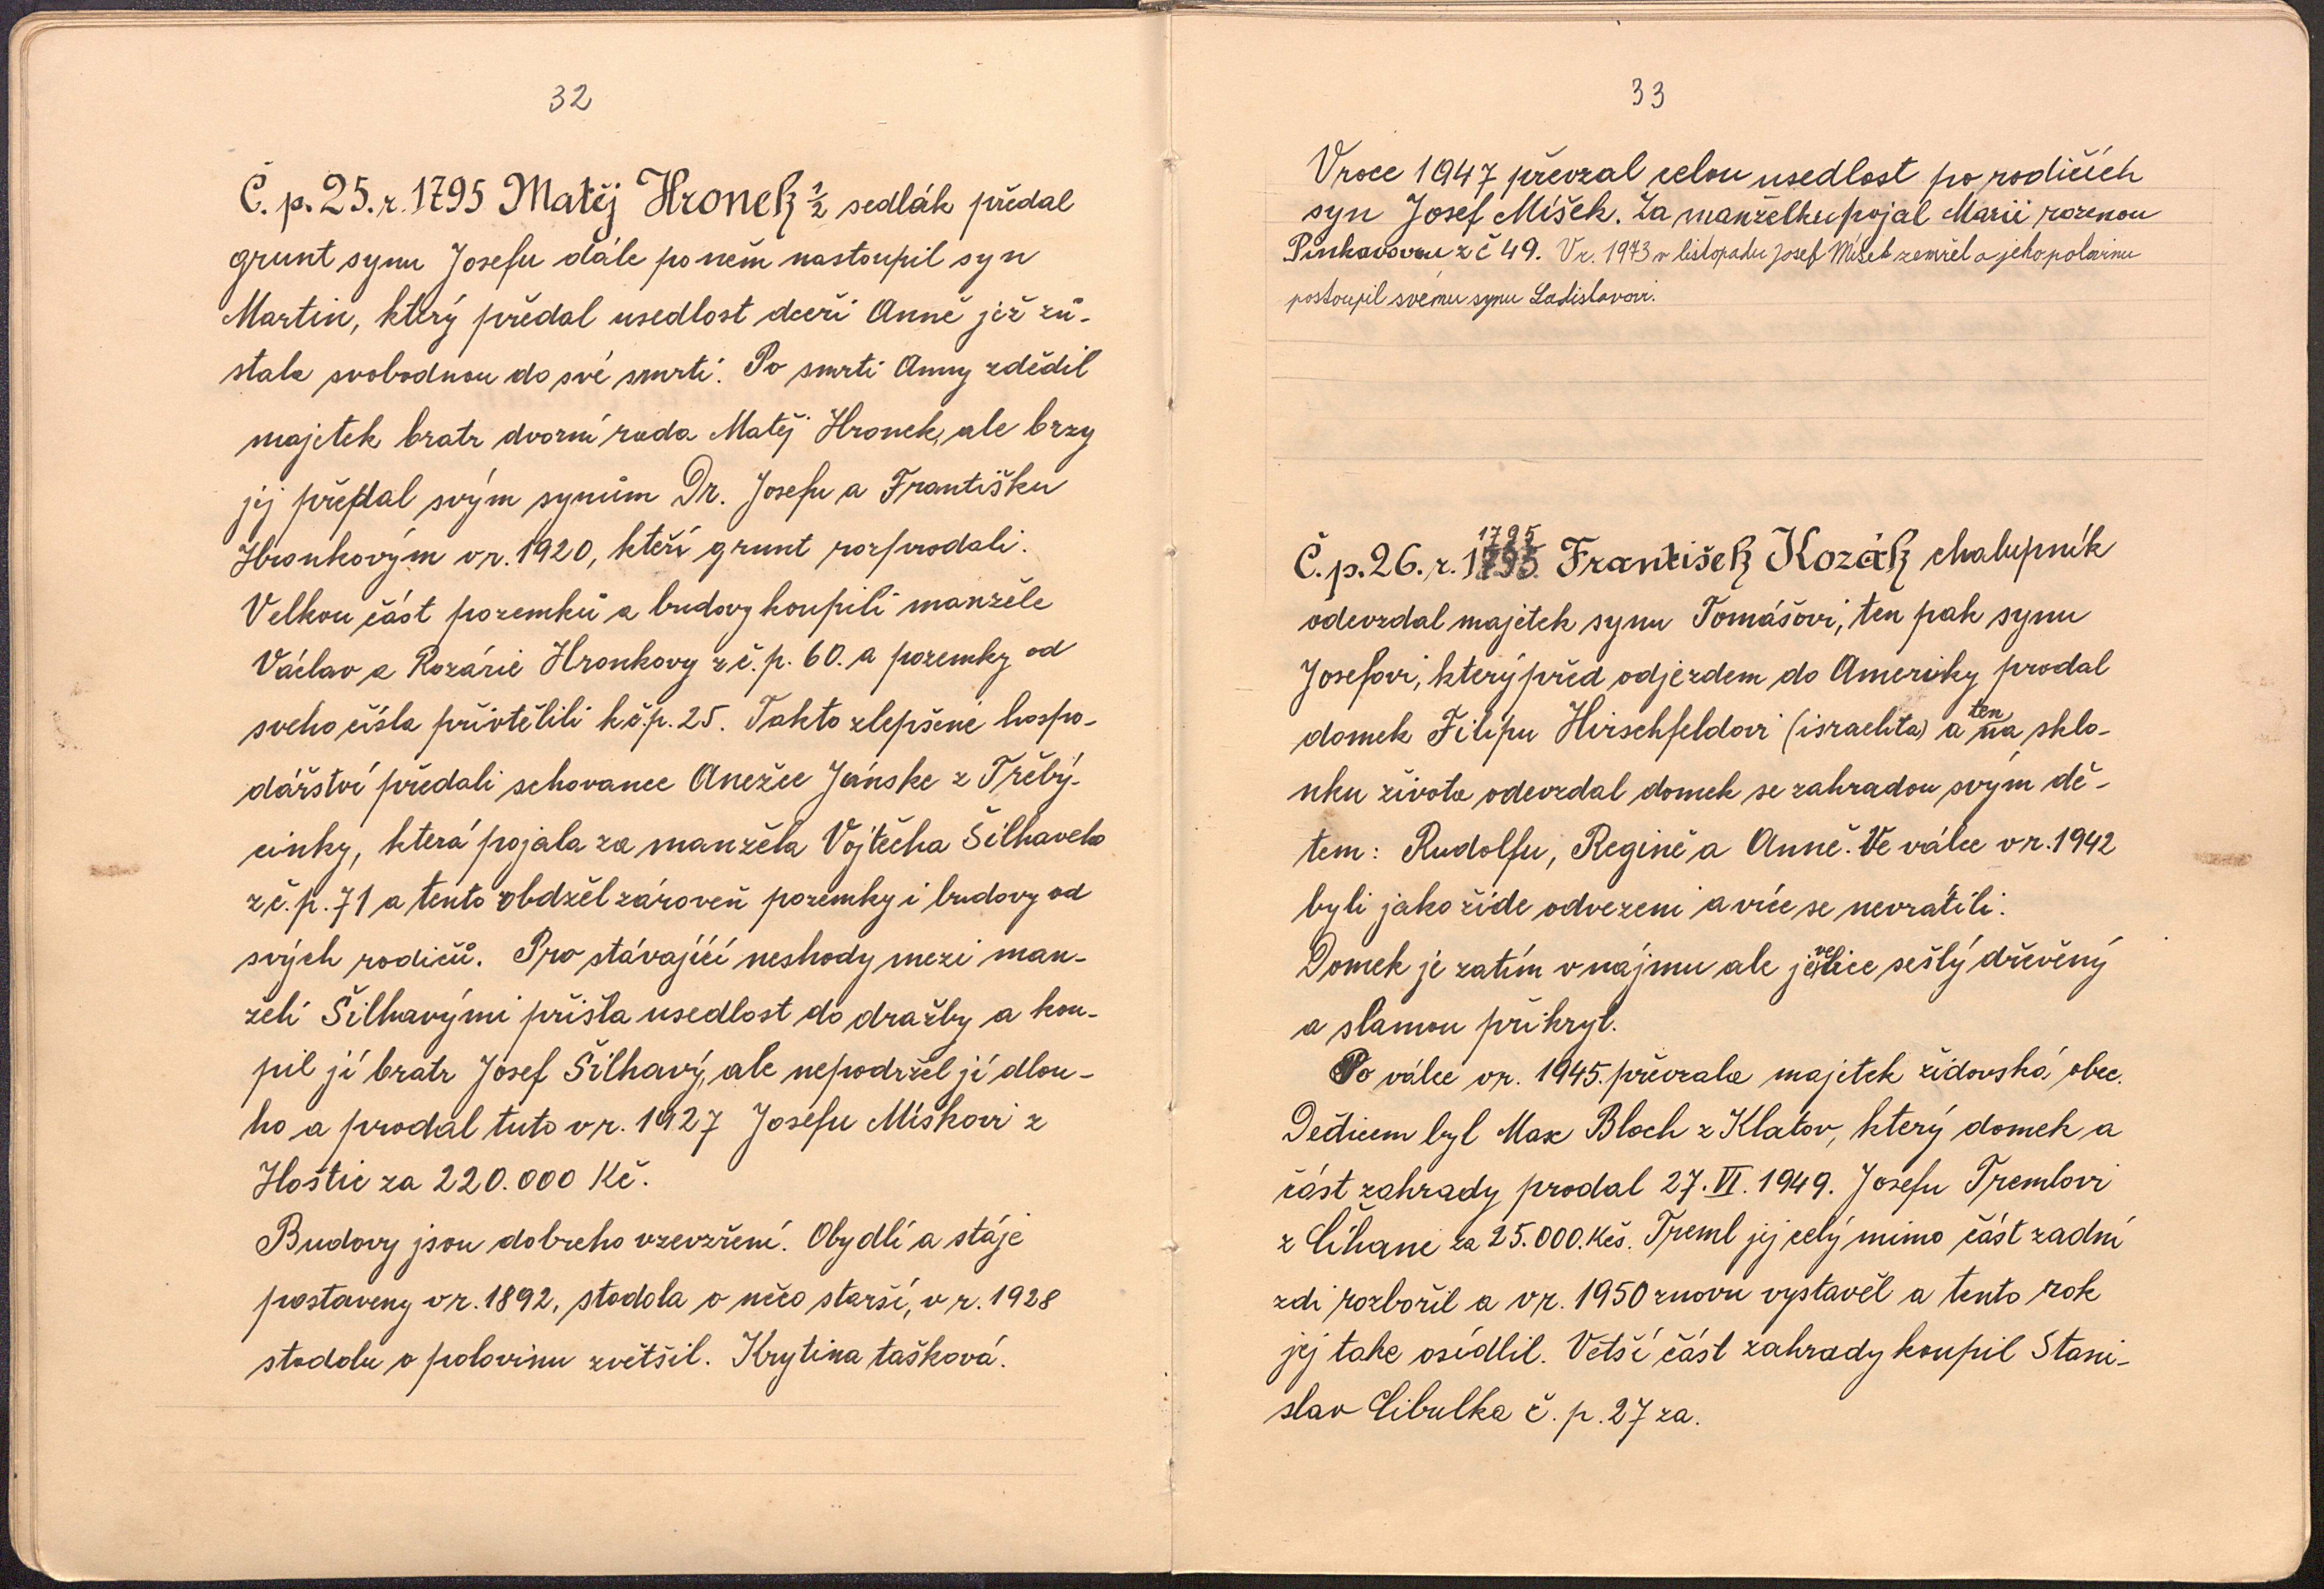 32
Č. p. 25. r. 1795 Matěj Hronek ½ sedlák předal
grunt synu Josefu dále po něm nastoupil syn
Martin, který předal usedlost dceři Anně jež zů-
stala svobodnou do své smrti. Po smrti Anny zdědil
majetek bratr dvorní rada Matěj Hronek, ale brzy
jej předal svým synům Dr. Josefu a Františku
Hronkovým v r. 1920, kteří grunt rozprodali.
Velkou část pozemků a budovy koupili manžele
Václav a Rozárie Hronkovy z č. p. 60. a pozemky od
sveho čísla přivtělili k č.p. 25. Takto zlepšené hospo-
dářství předali schovance Anežce Jánske z Třebý-
cinky, která pojala za manžela Vojtěcha Šilhaveho
z č. p. 71 a tento obdržel zároveň pozemky i budovy od
svých rodičů. Pro stávající neshody mezi man-
želi Šilhavými přišla usedlost do dražby a kou-
pil jí bratr Josef Šilhavý, ale nepodržel jí dlou-
ho a prodal tuto v r. 1927 Josefu Míškovi z
Hoštic za 220.000 Kč.
Budovy jsou dobreho vzevzření. Obydlí a stáje
postaveny v r. 1892, stodola o něco starší, v r. 1928
stodolu o polovinu zvětšil. Krytina tašková.
33
V roce 1947 převzal celou usedlost po rodičích
syn Josef Míšek. Za manželku pojal Marii rozenou
Pinkavovou z č 49. V r. 1973 v listopadu Josef Míšek zemřel a jeho polovinu
postoupil svému synu Ladislavovi.
1795
Č. p. 26. r. 1795 František Kozák chalupník
odevzdal majetek synu Tomášovi, ten pak synu
Josefovi, který před odjezdem do Ameriky prodal
domek Filipu Hirschfeldovi (israelita) a ten na sklo-
nku života odevzdal domek se zahradou svým dě-
tem: Rudolfu, Regině a Anně. Ve válce v r. 1942
byli jako židé odvezeni a více se nevrátili.
Domek je zatím v nájmu ale je velice sešlý dřevěný
a slamou přikryl.
Po válce v r. 1945. převzala majetek židovská obec.
Dědicem byl Max Bloch z Klatov, který domek a
část zahrady prodal 27. VI. 1949. Josefu Tremlovi
z Cíhané za 25.000. Kčs. Treml jej celý mimo část zadní
zdi rozbořil a v r. 1950 znovu vystavěl a tento rok
jej take osídlil. Větší část zahrady koupil Stani-
slav Cibulka č. p. 27 za.